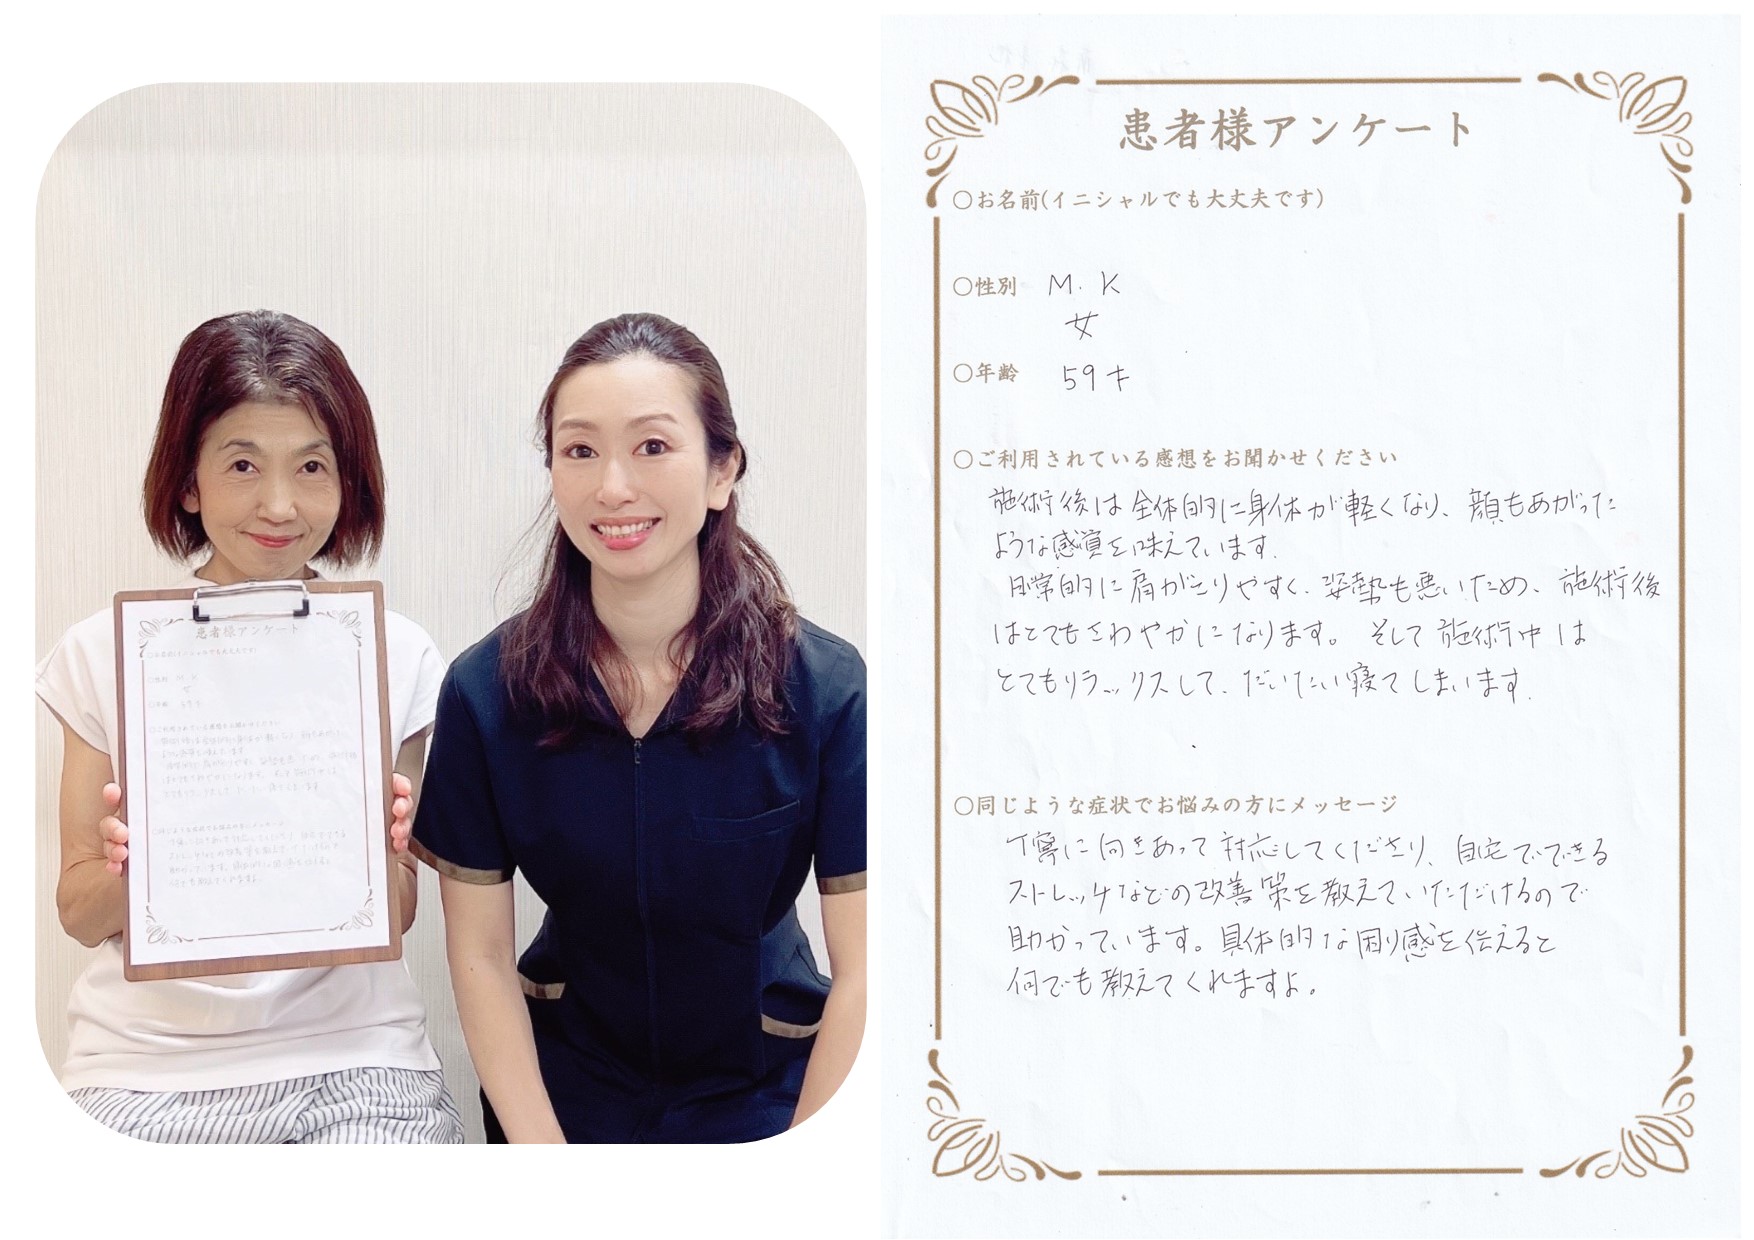 患者様アンケート
○お名前(イニシャルでも大丈夫です)
○性別 M. K
女
○年齢 59才
○ご利用されている感想をお聞かせください
施術後は全体的に身体が軽くなり、顔もあがった
ような感覚を味えています.
日常的に肩がこりやすく、姿勢も悪いため、施術後
はとてもさわやかになります。そして施術中は
とてもリラックスして、だいたい寝てしまいます.
○同じような症状でお悩みの方にメッセージ
丁寧に向きあって対応してくださり、自宅でできる
ストレッチなどの改善策を教えていただけるので
助かっています。具体的な困り感を伝えると
何でも教えてくれますよ。
患者様アンケート